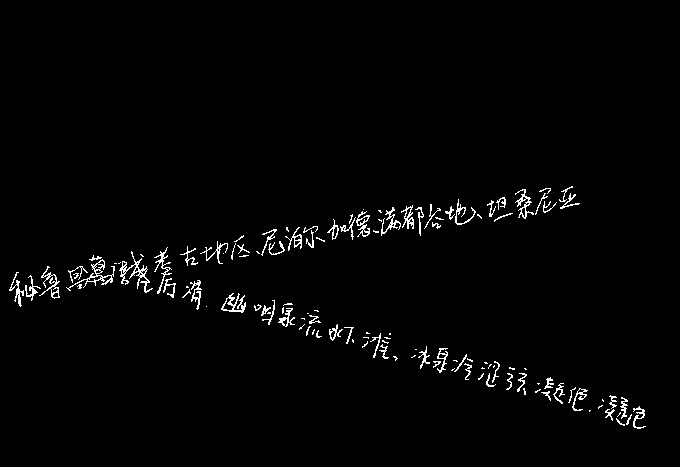 秘鲁昌昌城考古地区、尼泊尔加德满都谷地、坦桑尼亚
莺语花底滑,幽咽泉流水下滩、冰泉冷涩弦凝绝,凝绝